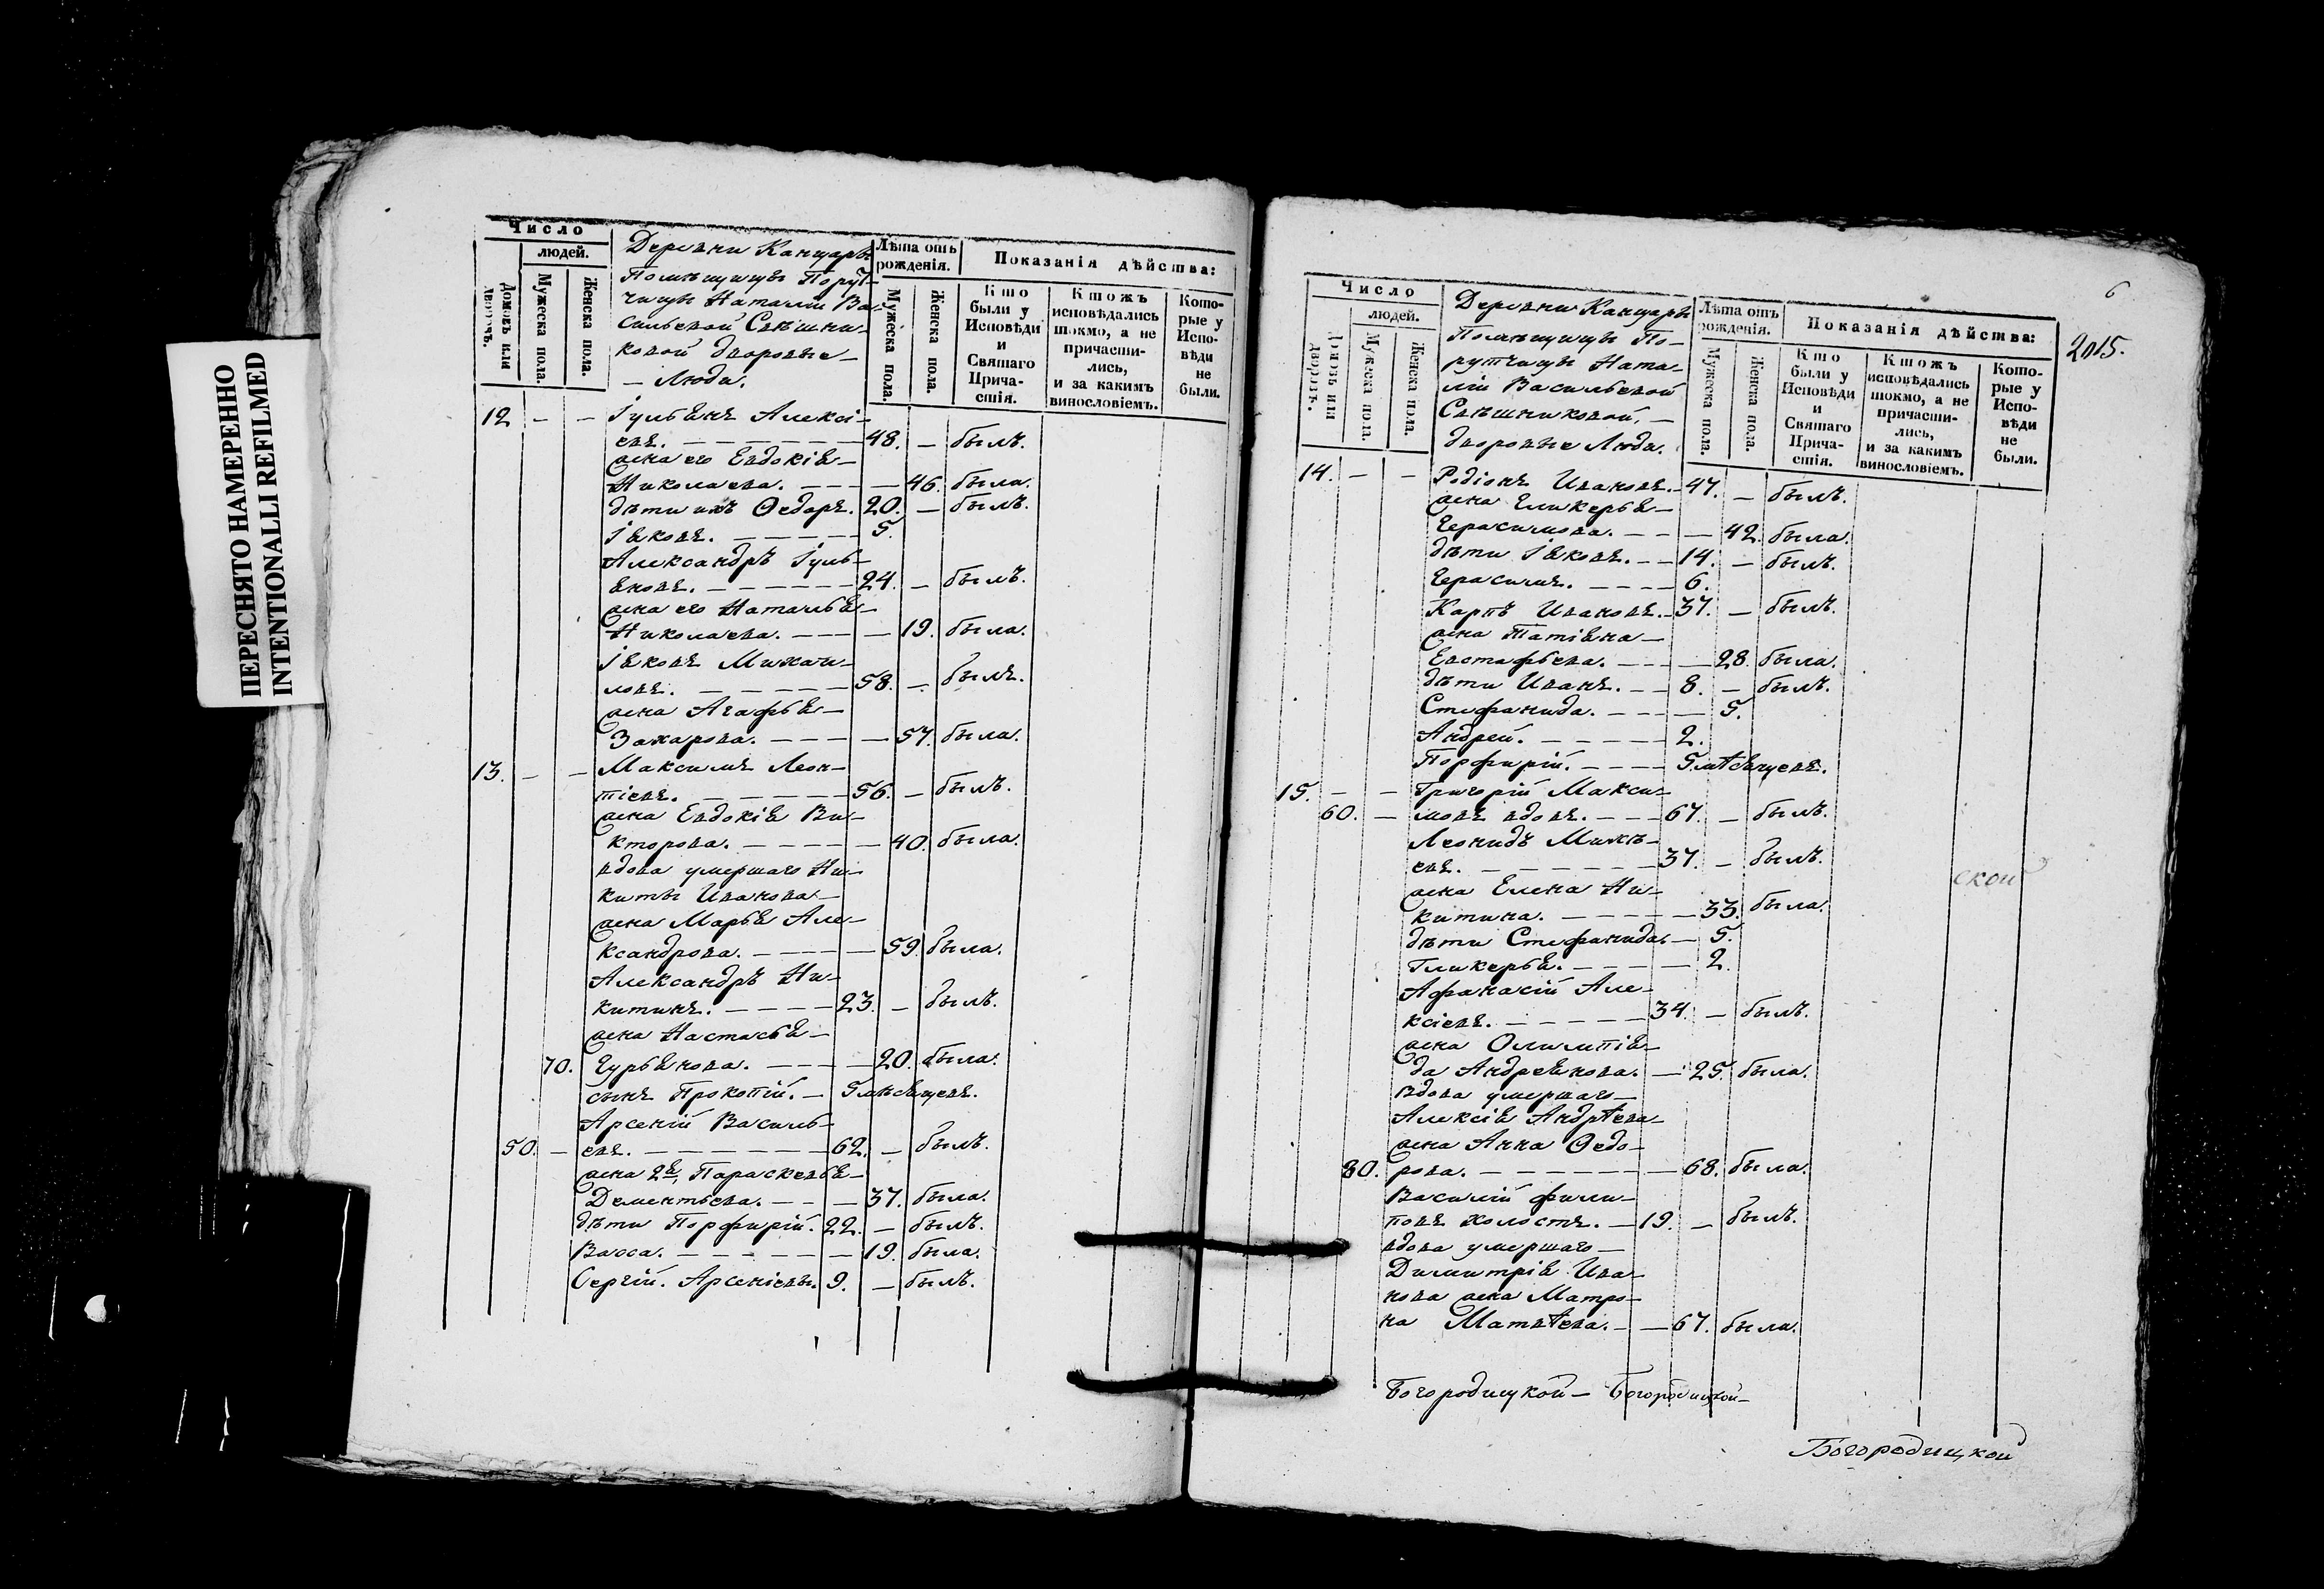 ПЕРЕСНЯТО НАМЕРЕННО
INTENTIONALLI REFILMED
Число
людей.
Домовъ или дворовъ.
Мужеска пола.
Женска пола.
Деревни Канщеръ
Помѣщицы Порут-
чицы Наталіи Ва-
сильевой Свѣшни-
ковой дворовые
Люди.
Лѣта отъ рожденія.
Мужеска пола.
Женска пола.
Показанія дѣйства:
Кто были у Исповѣди и Святаго Прича-стія.
Ктожъ исповѣдались токмо, а не причасти-лись, и за какимъ винословіемъ.
Кото-рые у Испо-вѣди не были.
12 — — Іульянъ Алексі-
евъ. 48. — былъ.
жена его Евдокія
Николаева. — 46. была.
дѣти ихъ Ѳедоръ. 20. — былъ.
Іяковъ. 5.
Александръ Іуль-
яновъ. 24. — былъ.
жена его Наталья
Николаева. — 19. была.
Іяковъ Михаи-
ловъ. 58. — былъ.
жена Агафья
Захарова. — 57. была.
13. — — Максимъ Леон-
тіевъ. 56. — былъ.
жена Евдокія Ви-
кторова. — 40. была.
вдова умершаго Ни-
киты Иванова
жена Марья Але-
ксандрова. — 59. была.
Александръ Ни-
китинъ. 23. — былъ.
жена Настасья
70. Гурьянова. — 20. была.
сынъ Прокопій. — 5 мѣсяцевъ.
Арсеній Василь-
50. — евъ. 62. — былъ.
жена 2я, Параскевья
Дементьева. — 37. была.
дѣти Порфирій. 22. — былъ.
Васса. — 19. была.
Сергій. Арсеніевы. 9. — былъ.
6
2015.
Число
людей.
Домовъ или дворовъ.
Мужеска пола.
Женска пола.
Деревни Канщеръ
Помѣщицы По-
рутчицы Ната-
ліи Васильевой
Свѣшниковой,
дворовые Люди.
Лѣта отъ рожденія.
Мужеска пола.
Женска пола.
Показанія дѣйства:
Кто были у Исповѣди и Святаго Прича-стія.
Ктожъ исповѣдались токмо, а не причасти-лись, и за какимъ винословіемъ.
Кото-рые у Испо-вѣди не были.
14. — — Родіонъ Ивановъ. 47. — былъ.
жена Гликерья
Герасимова. — 42. была.
дѣти Іяковъ. 14. — былъ.
Герасимъ. 6.
Карпъ Ивановъ. 37. — былъ.
жена Татіяна
Евстафьева. — 28. была.
дѣти Иванъ. 8. — былъ.
Стефанида. — 5.
Андрей. 2.
Порфирій. 5. мѣсяцевъ.
15. — — Григорій Макси-
60. — мовъ вдовъ. 67. — былъ.
Леонидъ Михѣ-
евъ. 37. — былъ.
жена Елена Ни-
китина. — 33. была.
дѣти Стефанида. — 5.
Гликерья. — 2.
Афанасій Але-
ксіевъ. 34. — былъ.
жена Олимпія-
да Андреянова. — 25. была.
вдова умершаго
Алексія Андрѣева
жена Анна Ѳедо-
80. рова. — 68. была.
Василій Фили-
повъ холостъ. — 19. — былъ.
вдова умершаго
Димитрія Ива-
нова жена Матро-
на Матвѣева. — 67. была.
ской
Богородицкой — Богородицкой —
Богородицкой